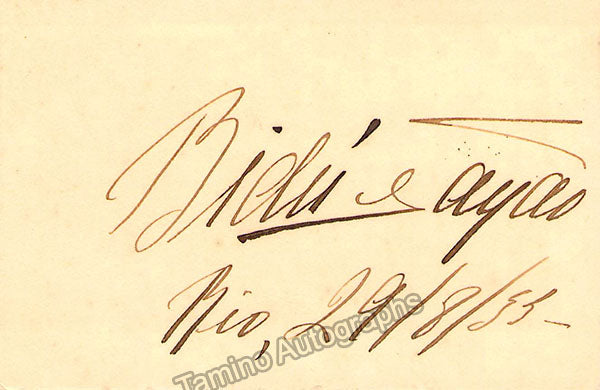 Bidú Sayão
Rio, 29/8/35-
Tamino Autographs